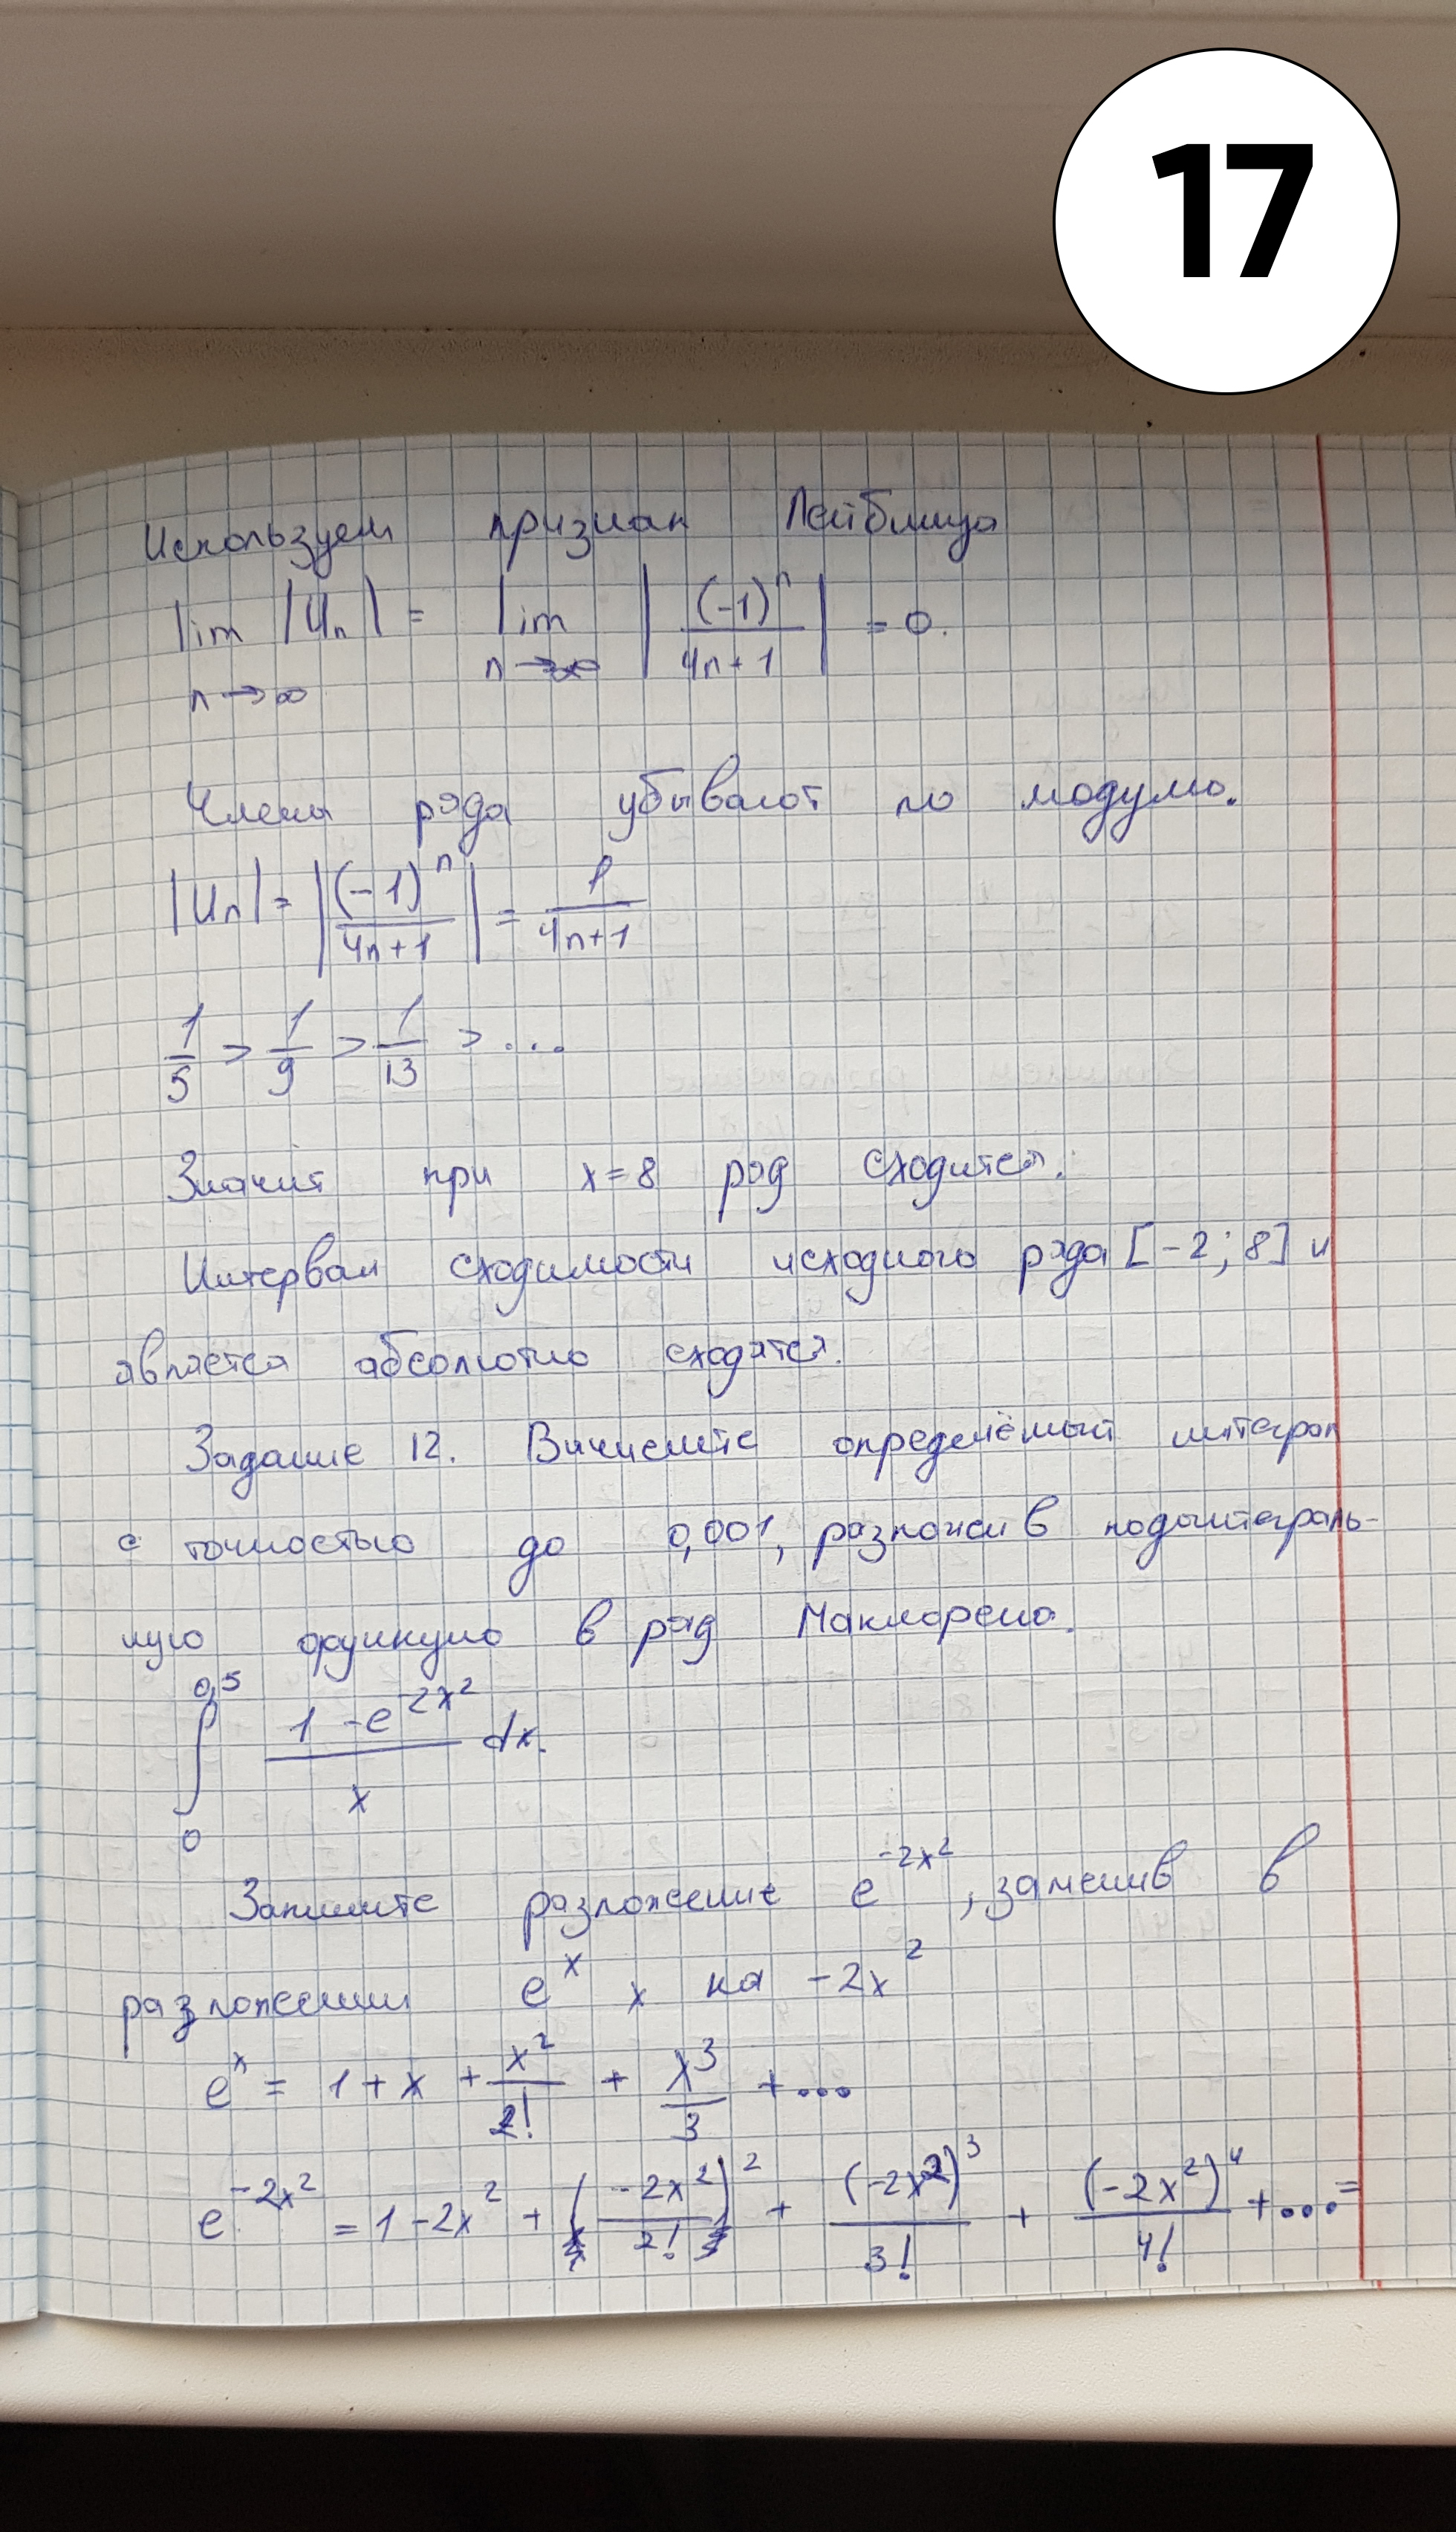 17
Используем признак Лейбница
lim |Un| = lim | (-1)^n / 4n+1 | = 0.
n→∞ n→∞
Члены ряда убывают по модулю.
|Un| = | (-1)^n / 4n+1 | = 1 / 4n+1
1/5 > 1/9 > 1/13 > ...
Значит при x=8 ряд сходится.
Интервал сходимости исходного ряда [-2; 8] и
является абсолютно сходятся.
Задание 12. Вычислите определённый интеграл
с точностью до 0,001, разложив подынтеграль-
ную функцию в ряд Маклорена.
∫_0^0,5 (1 - e^-2x^2) / x dx.
Запишите разложение e^-2x^2, заменив в
разложении e^x x на -2x^2
e^x = 1 + x + x^2/2! + x^3/3 + ...
e^-2x^2 = 1 - 2x^2 + (-2x^2/2!)^2 + (-2x^2)^3/3! + (-2x^2)^4/4! + ... =